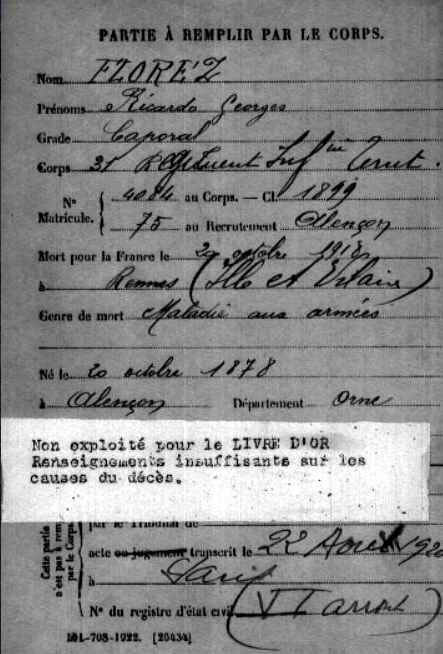 PARTIE À REMPLIR PAR LE CORPS.
Nom FLOREZ
Prénoms Ricardo Georges
Grade Caporal
Corps 31 Régiment Inf ie Territ.
N° Matricule. 4084 au Corps. — Cl. 1899
75 au Recrutement Alençon
Mort pour la France le octobre 1918
à Rennes (Ille et Vilaine)
Genre de mort Maladie aux armées
Né le 20 octobre 1878
à Alençon Département Orne
Non exploité pour le LIVRE D'OR
Renseignements insuffisants sur les
causes du décès.
par le Tribunal de
acte ou jugement transcrit le 22 Août 1920
à Paris
N° du registre d'état civil (VI arrond)
Cette partie
n'est pas à rem
par le Corps.
101-708-1922. [20434]